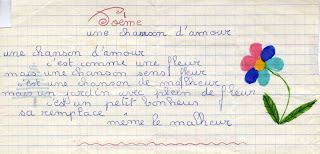 Poème
une chanson d'amour
une chanson d'amour
c'est comme une fleur
mais une chanson sens fleur
c'est une chanson de malheur
mais un jardin avec plein de fleur
c'est un petit bonheur
sa remplace
même le malheur